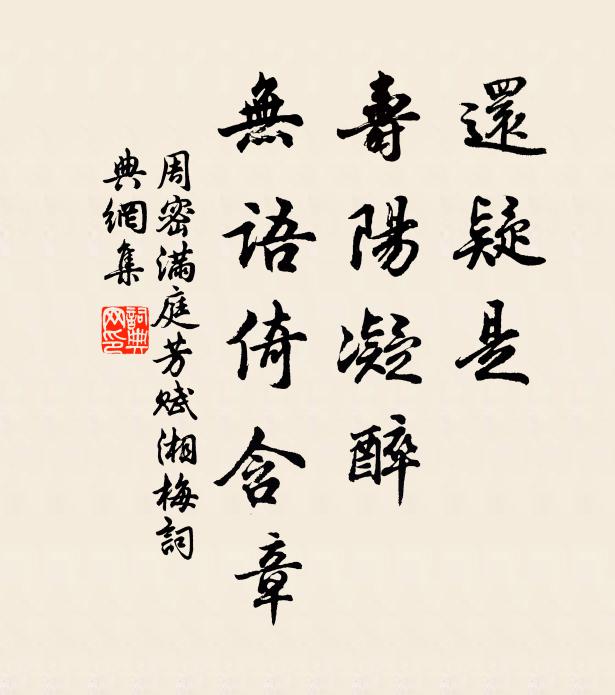 還疑是
壽陽凝醉
無語倚含章
周密滿庭芳賦湘梅詞
典網集
詞典
网印